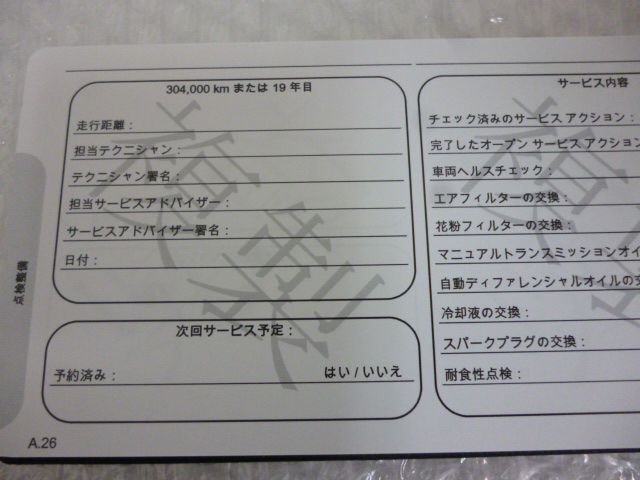 304,000 km または 19 年目
走行距離：
担当テクニシャン：
テクニシャン署名：
担当サービスアドバイザー：
サービスアドバイザー署名：
日付：
次回サービス予定：
予約済み：
はい / いいえ
サービス内容
チェック済みのサービス アクション：
完了したオープン サービス アクション
車両ヘルスチェック：
エアフィルターの交換：
花粉フィルターの交換：
マニュアルトランスミッションオイ
自動ディファレンシャルオイルの交
冷却液の交換：
スパークプラグの交換：
耐食性点検：
点検整備
A.26
複製
複製